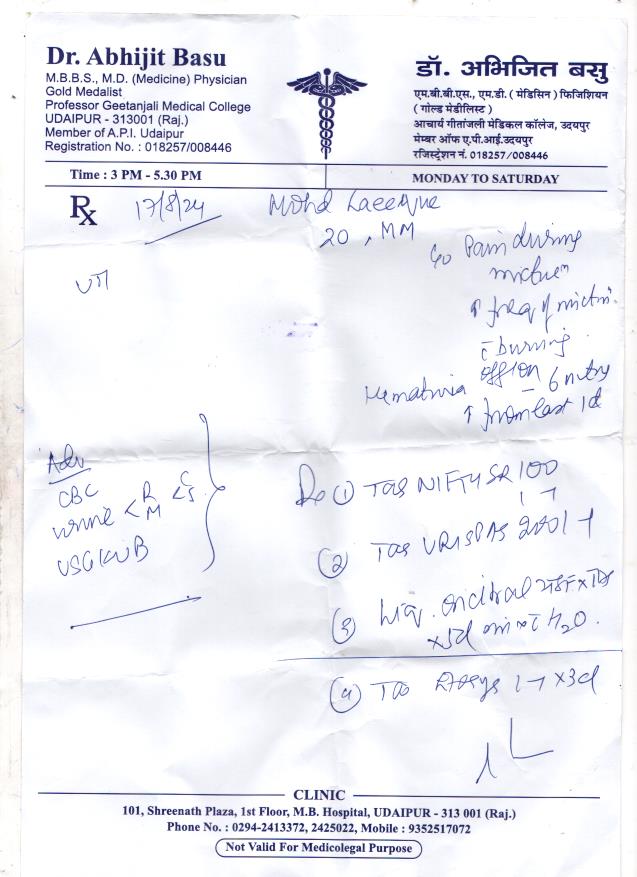 Dr. Abhijit Basu
M.B.B.S., M.D. (Medicine) Physician
Gold Medalist
Professor Geetanjali Medical College
UDAIPUR - 313001 (Raj.)
Member of A.P.I. Udaipur
Registration No. : 018257/008446
डॉ. अभिजित बसु
एम.बी.बी.एस., एम.डी. ( मेडिसिन ) फिजिशियन
( गोल्ड मेडीलिस्ट )
आचार्य गीतांजली मेडिकल कॉलेज, उदयपुर
मेम्बर ऑफ ए.पी.आई.उदयपुर
रजिस्ट्रेशन नं. 018257/008446
Time : 3 PM - 5.30 PM
MONDAY TO SATURDAY
Rx 17/8/24 Mohd Laeeque
20
Pain during
↑ freq of
burning
Hematuria
↑ from last 1d
Adv
CBC
Urine < R M < C S
USG KUB
① Tab NIFTY SR 100
1-1
② Tab URISPAS 200 1-1
③ Liq.
H2O.
④ Tab 1-1 x3d
CLINIC
101, Shreenath Plaza, 1st Floor, M.B. Hospital, UDAIPUR - 313 001 (Raj.)
Phone No. : 0294-2413372, 2425022, Mobile : 9352517072
Not Valid For Medicolegal Purpose